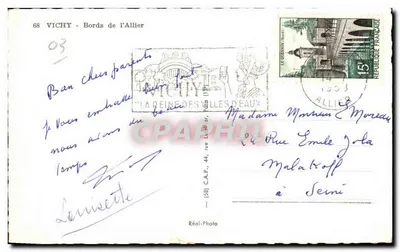 68 VICHY - Bords de l'Allier
03
VICHY
LA REINE DES VILLES D'EAUX
15F
ALLIER
Bon chers parents
je vous embrasse bien fort
nous avons du beau
temps
Louisette
Madame Monsieur Moreau
24 Rue Emile Zola
Malakoff
à Seine
Réal-Photo